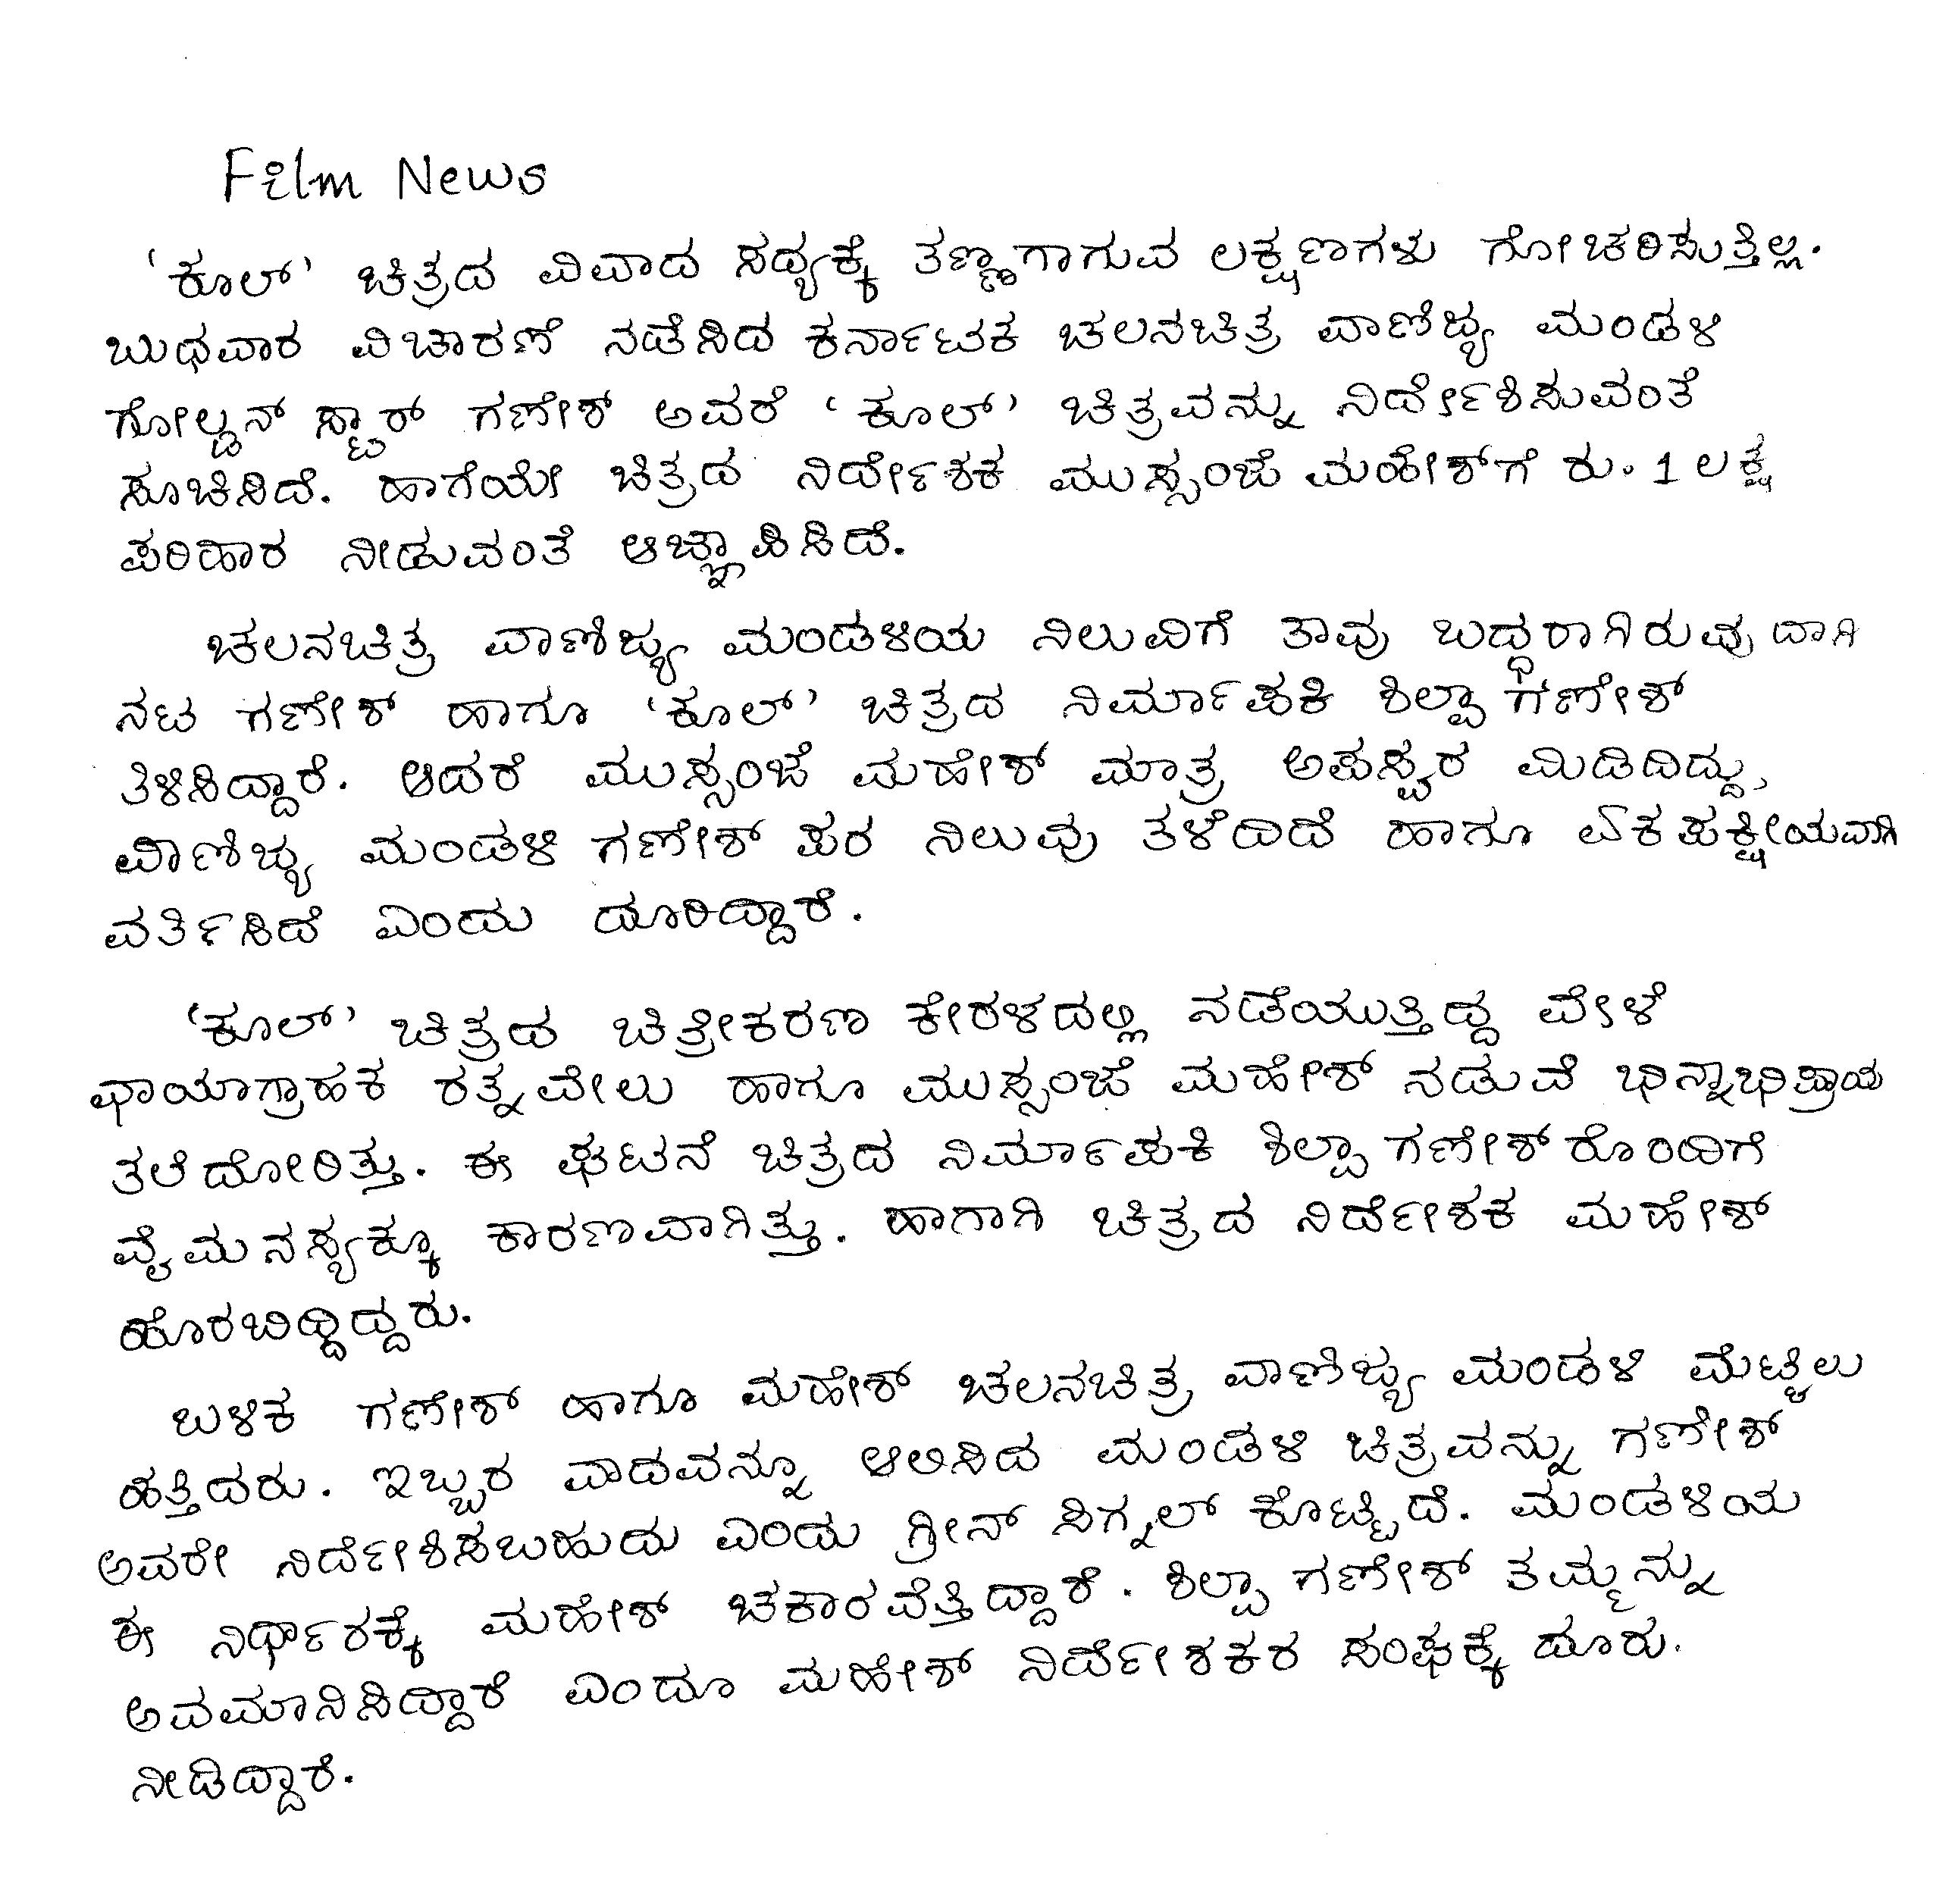 Film News
‘ಕೂಲ್’ ಚಿತ್ರದ ವಿವಾದ ಸಧ್ಯಕ್ಕೆ ತಣ್ಣಗಾಗುವ ಲಕ್ಷಣಗಳು ಗೋಚರಿಸುತ್ತಿಲ್ಲ.
ಬುಧವಾರ ವಿಚಾರಣೆ ನಡೆಸಿದ ಕರ್ನಾಟಕ ಚಲನಚಿತ್ರ ವಾಣಿಜ್ಯ ಮಂಡಳಿ
ಗೋಲ್ಡನ್ ಸ್ಟಾರ್ ಗಣೇಶ್ ಅವರೆ ‘ಕೂಲ್’ ಚಿತ್ರವನ್ನು ನಿರ್ದೇಶಿಸುವಂತೆ
ಸೂಚಿಸಿದೆ. ಹಾಗೆಯೇ ಚಿತ್ರದ ನಿರ್ದೇಶಕ ಮುಸ್ಸಂಜೆ ಮಹೇಶ್‌ಗೆ ರು. 1 ಲಕ್ಷ
ಪರಿಹಾರ ನೀಡುವಂತೆ ಆಜ್ಞಾಪಿಸಿದೆ.
ಚಲನಚಿತ್ರ ವಾಣಿಜ್ಯ ಮಂಡಳಿಯ ನಿಲುವಿಗೆ ತಾವು ಬದ್ಧರಾಗಿರುವುದಾಗಿ
ನಟ ಗಣೇಶ್ ಹಾಗೂ ‘ಕೂಲ್’ ಚಿತ್ರದ ನಿರ್ಮಾಪಕಿ ಶಿಲ್ಪಾ ಗಣೇಶ್
ತಿಳಿಸಿದ್ದಾರೆ. ಆದರೆ ಮುಸ್ಸಂಜೆ ಮಹೇಶ್ ಮಾತ್ರ ಅಪಸ್ವರ ಮಿಡಿದಿದ್ದು,
ವಾಣಿಜ್ಯ ಮಂಡಳಿ ಗಣೇಶ್ ಪರ ನಿಲುವು ತಳೆದಿದೆ ಹಾಗೂ ಏಕಪಕ್ಷೀಯವಾಗಿ
ವರ್ತಿಸಿದೆ ಎಂದು ದೂರಿದ್ದಾರೆ.
‘ಕೂಲ್’ ಚಿತ್ರದ ಚಿತ್ರೀಕರಣ ಕೇರಳದಲ್ಲಿ ನಡೆಯುತ್ತಿದ್ದ ವೇಳೆ
ಛಾಯಾಗ್ರಾಹಕ ರತ್ನವೇಲು ಹಾಗೂ ಮುಸ್ಸಂಜೆ ಮಹೇಶ್ ನಡುವೆ ಭಿನ್ನಾಭಿಪ್ರಾಯ
ತಲೆದೋರಿತ್ತು. ಈ ಘಟನೆ ಚಿತ್ರದ ನಿರ್ಮಾಪಕಿ ಶಿಲ್ಪಾ ಗಣೇಶ್‌ರೊಂದಿಗೆ
ವೈಮನಸ್ಯಕ್ಕೂ ಕಾರಣವಾಗಿತ್ತು. ಹಾಗಾಗಿ ಚಿತ್ರದ ನಿರ್ದೇಶಕ ಮಹೇಶ್
ಹೊರಬಿದ್ದಿದ್ದರು.
ಬಳಿಕ ಗಣೇಶ್ ಹಾಗೂ ಮಹೇಶ್ ಚಲನಚಿತ್ರ ವಾಣಿಜ್ಯ ಮಂಡಳಿ ಮೆಟ್ಟಿಲು
ಹತ್ತಿದರು. ಇಬ್ಬರ ವಾದವನ್ನೂ ಆಲಿಸಿದ ಮಂಡಳಿ ಚಿತ್ರವನ್ನು ಗಣೇಶ್
ಅವರೇ ನಿರ್ದೇಶಿಸಬಹುದು ಎಂದು ಗ್ರೀನ್ ಸಿಗ್ನಲ್ ಕೊಟ್ಟಿದೆ. ಮಂಡಳಿಯ
ಈ ನಿರ್ಧಾರಕ್ಕೆ ಮಹೇಶ್ ಚಕಾರವೆತ್ತಿದ್ದಾರೆ. ಶಿಲ್ಪಾ ಗಣೇಶ್ ತಮ್ಮನ್ನು
ಅವಮಾನಿಸಿದ್ದಾರೆ ಎಂದೂ ಮಹೇಶ್ ನಿರ್ದೇಶಕರ ಸಂಘಕ್ಕೆ ದೂರು.
ನೀಡಿದ್ದಾರೆ.